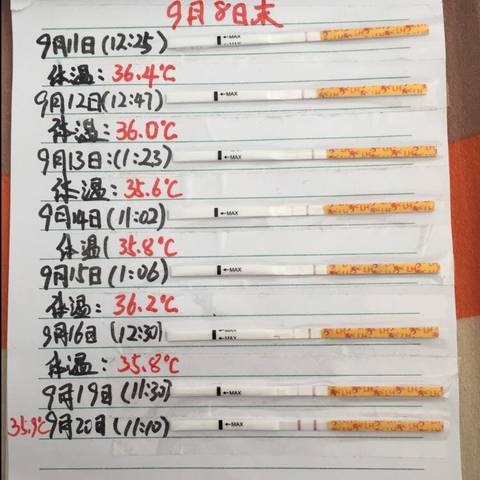 9月8日末
9月11日(12:25) ←MAX
体温: 36.4℃
9月12日(12:47) ←MAX
体温: 36.0℃
9月13日:(11:23) ←MAX
体温: 35.6℃
9月14日(11:02) ←MAX
体温( 35.8℃
9月15日(11:06) ←MAX
体温: 36.2℃
9月16日(12:30) ←MAX
体温: 35.8℃
9月19日(11:30) ←MAX
35.9℃ 9月20日(11:10) ←MAX